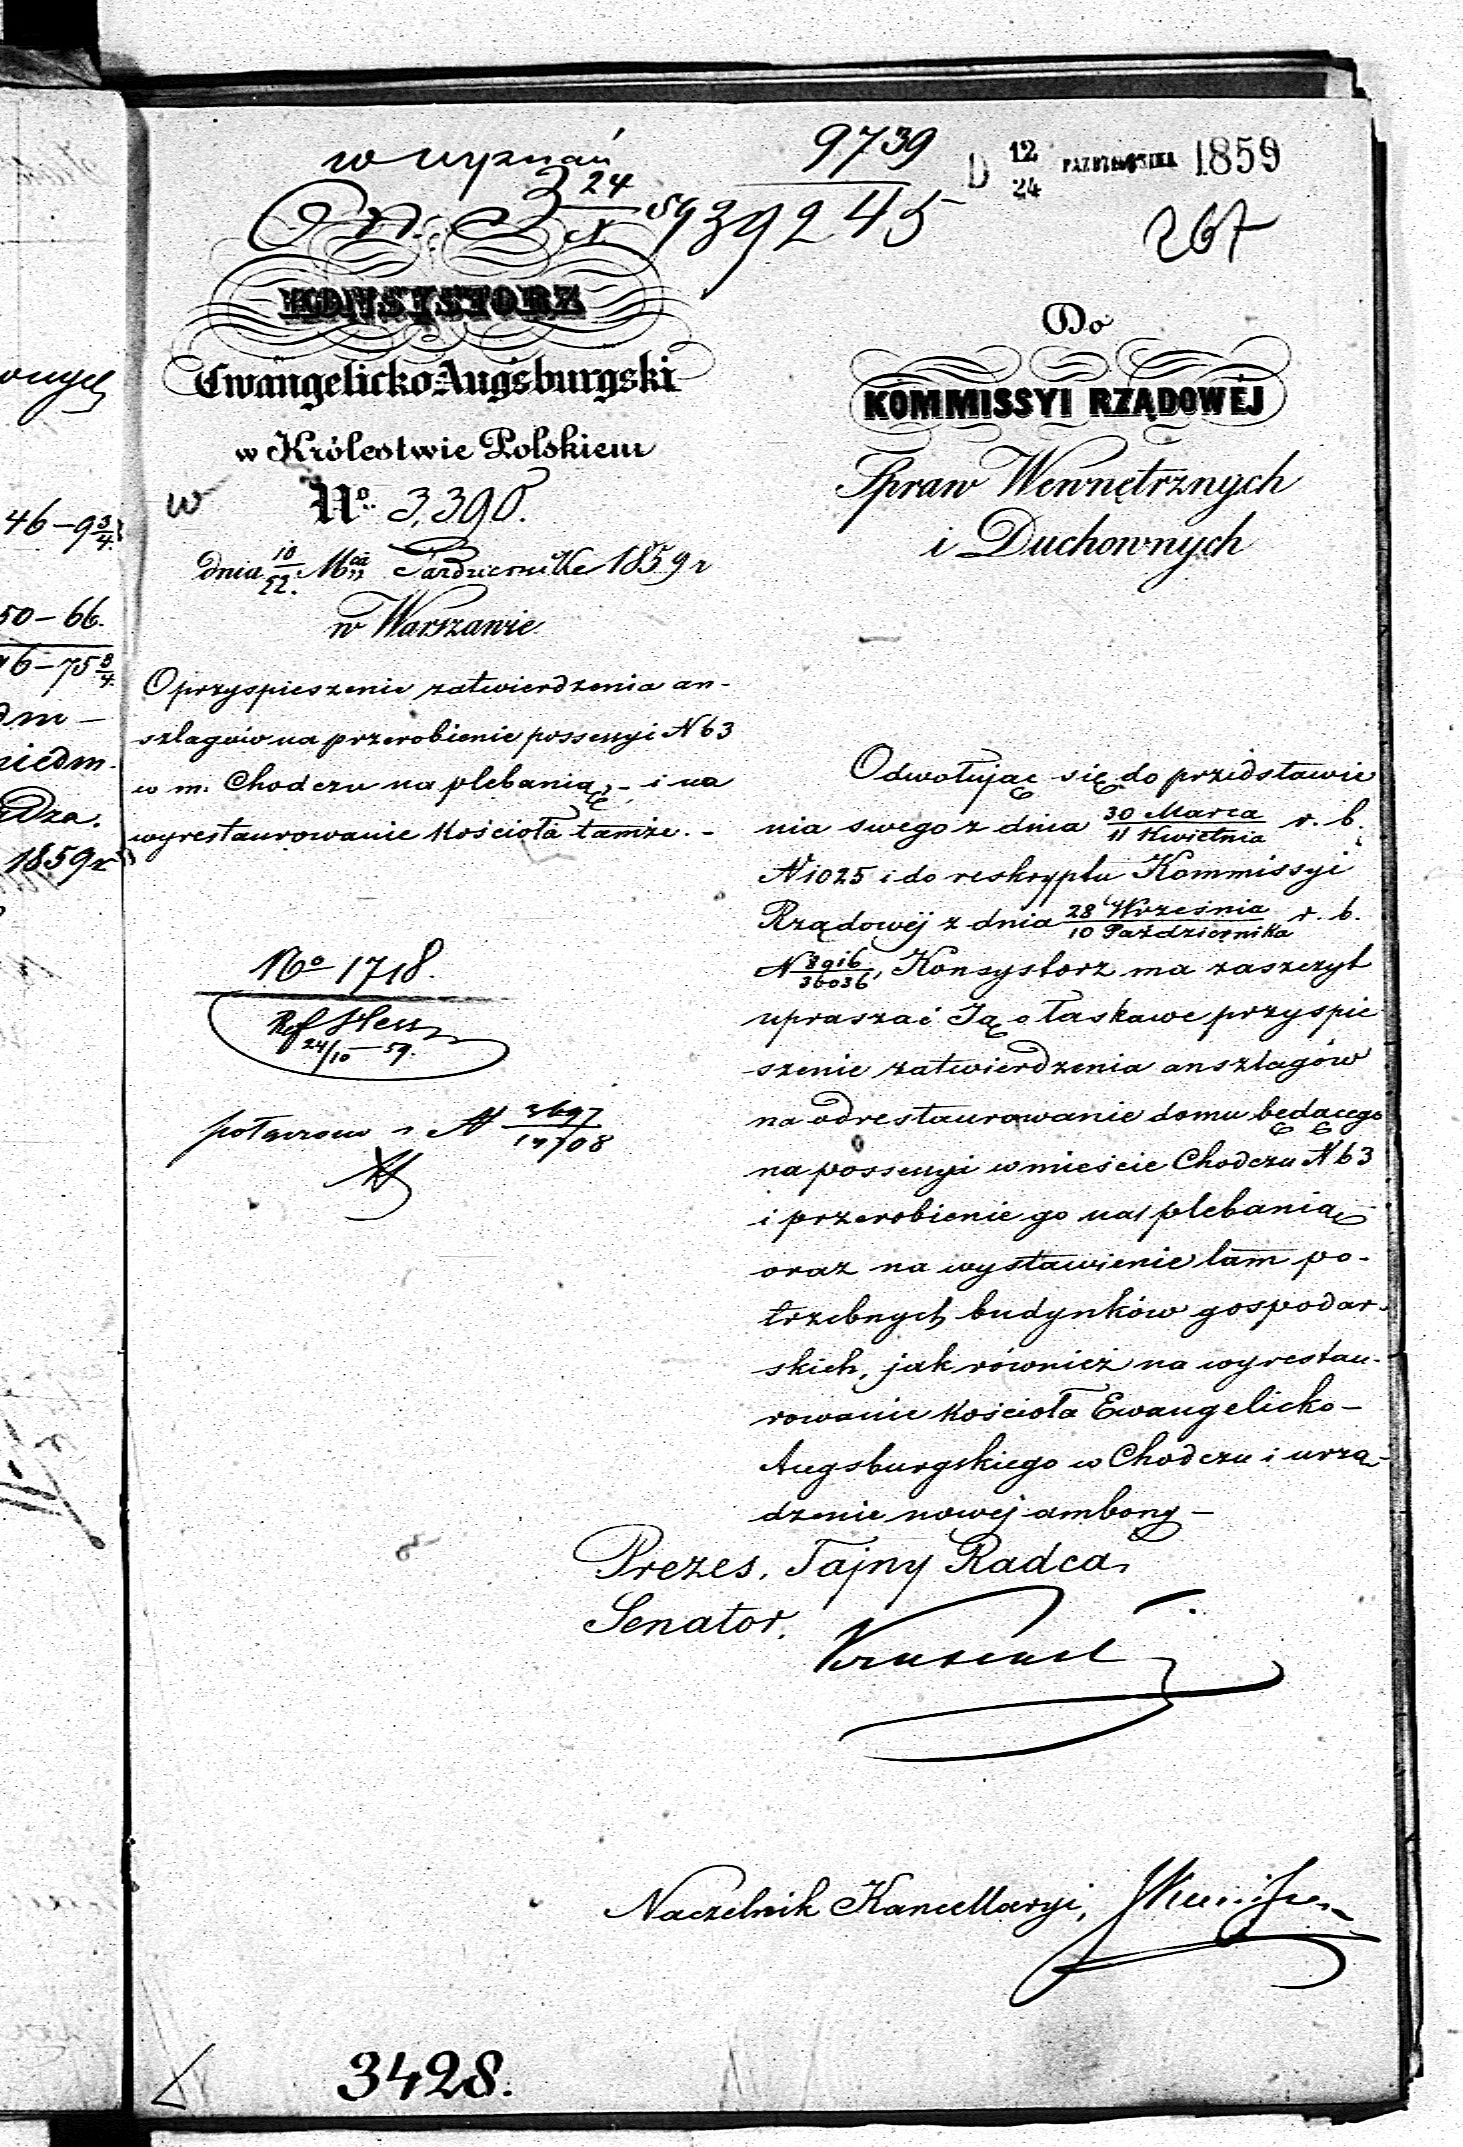 w wyznań
9739
39245
D 12/24 PAZDZIERNIKA 1859
267
KONSYSTORZ
Ewangelicko-Augsburgski
w Królestwie Polskiem
w
No. 3,390.
dnia 10/22. Mca Pazdziernika 1859 r
w Warszawie
O przyspieszenie zatwierdzenia an-
szlagów na przerobienie possessyi N 63
w m. Chodczu na plebanią, - i na
wyrestaurowanie Kościoła tamże. -
No 1718.
Ref Hess
24/10 - 59.
połączono z N 3697/17708
Do
KOMMISSYI RZĄDOWÉJ
Spraw Wewnętrznych
i Duchownych
Odwołując się do przedstawie
nia swego z dnia 30 Marca/11 Kwietnia r. b.
N 1025 i do reskryptu Kommissyi
Rządowéj z dnia 28 Września/10 Października r. b.
N 8916/36036, Konsystorz ma zaszczyt
upraszać Ją o łaskawe przyspie
szenie zatwierdzenia anszlagów
na odrestaurowanie domu będącego
na possessyi w mieście Chodczu N 63
i przerobienie go na plebanią
oraz na wystawienie tam po-
trzebnych budynków gospodar-
skich, jak również na wyrestau-
rowanie Kościoła Ewangelicko-
Augsburgskiego w Chodczu i urzą-
dzenie nowej ambony -
Prezes, Tajny Radca,
Senator.
Naczelnik Kancellaryi,
3428.
46-9 3/4
50-66.
46-75 3/4
1859 r